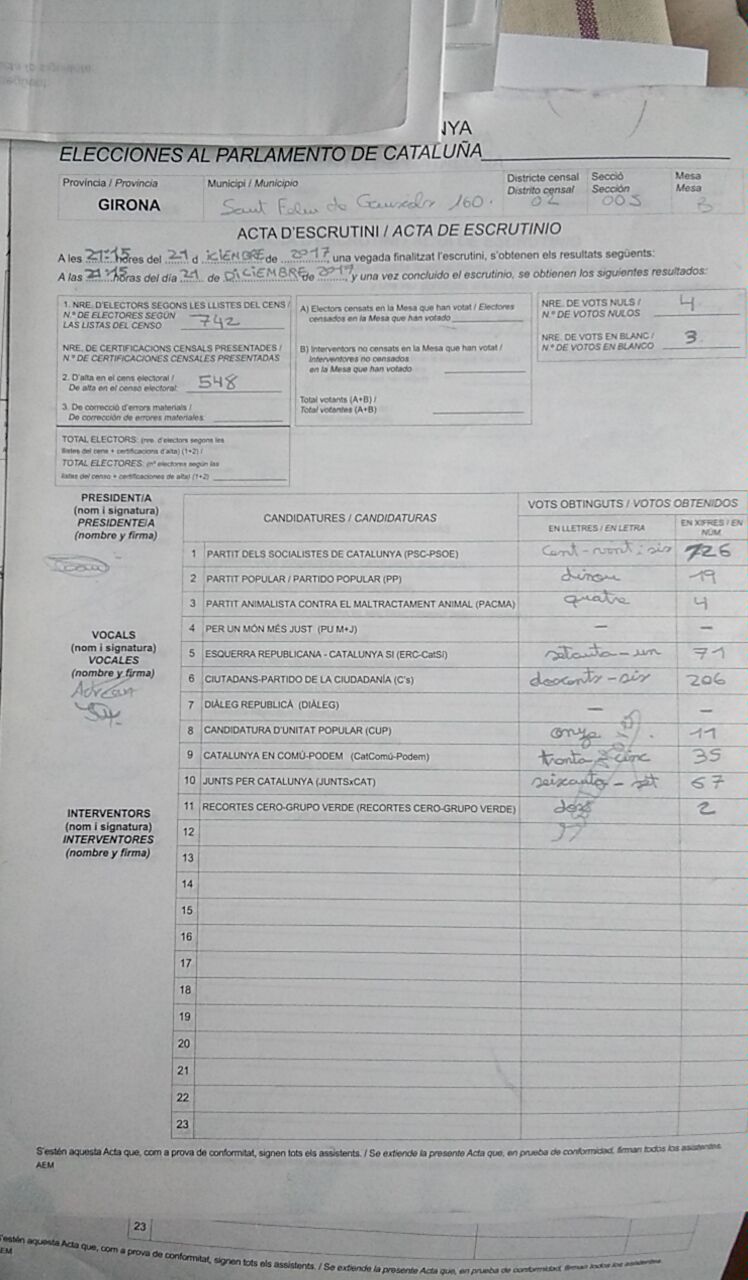 NYA
ELECCIONES AL PARLAMENTO DE CATALUÑA
Provincia / Provincia
GIRONA
Municipi / Municipio
Sant Feliu de Guixols 160.
Districte censal
Distrito censal
02
Secció
Sección
005
Mesa
Mesa
B
ACTA D'ESCRUTINI / ACTA DE ESCRUTINIO
A les 21:15 hores del 21 d ICIEMBRE de 2017, una vegada finalitzat l'escrutini, s'obtenen els resultats següents:
A las 21:15 horas del día 21 de DICIEMBRE de 2017, y una vez concluido el escrutinio, se obtienen los siguientes resultados:
1. NRE. D'ELECTORS SEGONS LES LLISTES DEL CENS /
N.º DE ELECTORES SEGÚN
LAS LISTAS DEL CENSO 742
NRE. DE CERTIFICACIONS CENSALS PRESENTADES /
N.º DE CERTIFICACIONES CENSALES PRESENTADAS
2. D'alta en el cens electoral /
De alta en el censo electoral: 548
3. De correcció d'errors materials /
De corrección de errores materiales:
TOTAL ELECTORS: (nre. d'electors segons les
llistes del cens + certificacions d'alta) (1+2) /
TOTAL ELECTORES: (nº electores según las
listas del censo + certificaciones de alta) (1+2)
A) Electors censats en la Mesa que han votat / Electores
censados en la Mesa que han votado
B) Interventors no censats en la Mesa que han votat /
Interventores no censados
en la Mesa que han votado
Total votants (A+B) /
Total votantes (A+B)
NRE. DE VOTS NULS /
N.º DE VOTOS NULOS 4
NRE. DE VOTS EN BLANC /
N.º DE VOTOS EN BLANCO 3
PRESIDENT/A
(nom i signatura)
PRESIDENTE/A
(nombre y firma)
VOCALS
(nom i signatura)
VOCALES
(nombre y firma)
Adrean
INTERVENTORS
(nom i signatura)
INTERVENTORES
(nombre y firma)
CANDIDATURES / CANDIDATURAS
VOTS OBTINGUTS / VOTOS OBTENIDOS
EN LLETRES / EN LETRA
EN XIFRES / EN
NÚM.
1 PARTIT DELS SOCIALISTES DE CATALUNYA (PSC-PSOE) Cent-vint i sis 126
2 PARTIT POPULAR / PARTIDO POPULAR (PP) dinou 19
3 PARTIT ANIMALISTA CONTRA EL MALTRACTAMENT ANIMAL (PACMA) quatre 4
4 PER UN MÓN MÉS JUST (PU M+J) – –
5 ESQUERRA REPUBLICANA - CATALUNYA SI (ERC-CatSí) setanta-un 71
6 CIUTADANS-PARTIDO DE LA CIUDADANÍA (C's) doscents-sis 206
7 DIÀLEG REPUBLICÀ (DIÀLEG) – –
8 CANDIDATURA D'UNITAT POPULAR (CUP) onze 11
9 CATALUNYA EN COMÚ-PODEM (CatComú-Podem) trenta cinc 35
10 JUNTS PER CATALUNYA (JUNTSxCAT) seixanta-set 67
11 RECORTES CERO-GRUPO VERDE (RECORTES CERO-GRUPO VERDE) dos 2
12
13
14
15
16
17
18
19
20
21
22
23
S'estén aquesta Acta que, com a prova de conformitat, signen tots els assistents. / Se extiende la presente Acta que, en prueba de conformidad, firman todos los asistentes.
AEM
23
S'estén aquesta Acta que, com a prova de conformitat, signen tots els assistents. / Se extiende la presente Acta que, en prueba de conformidad, firman todos los asistentes.
EM